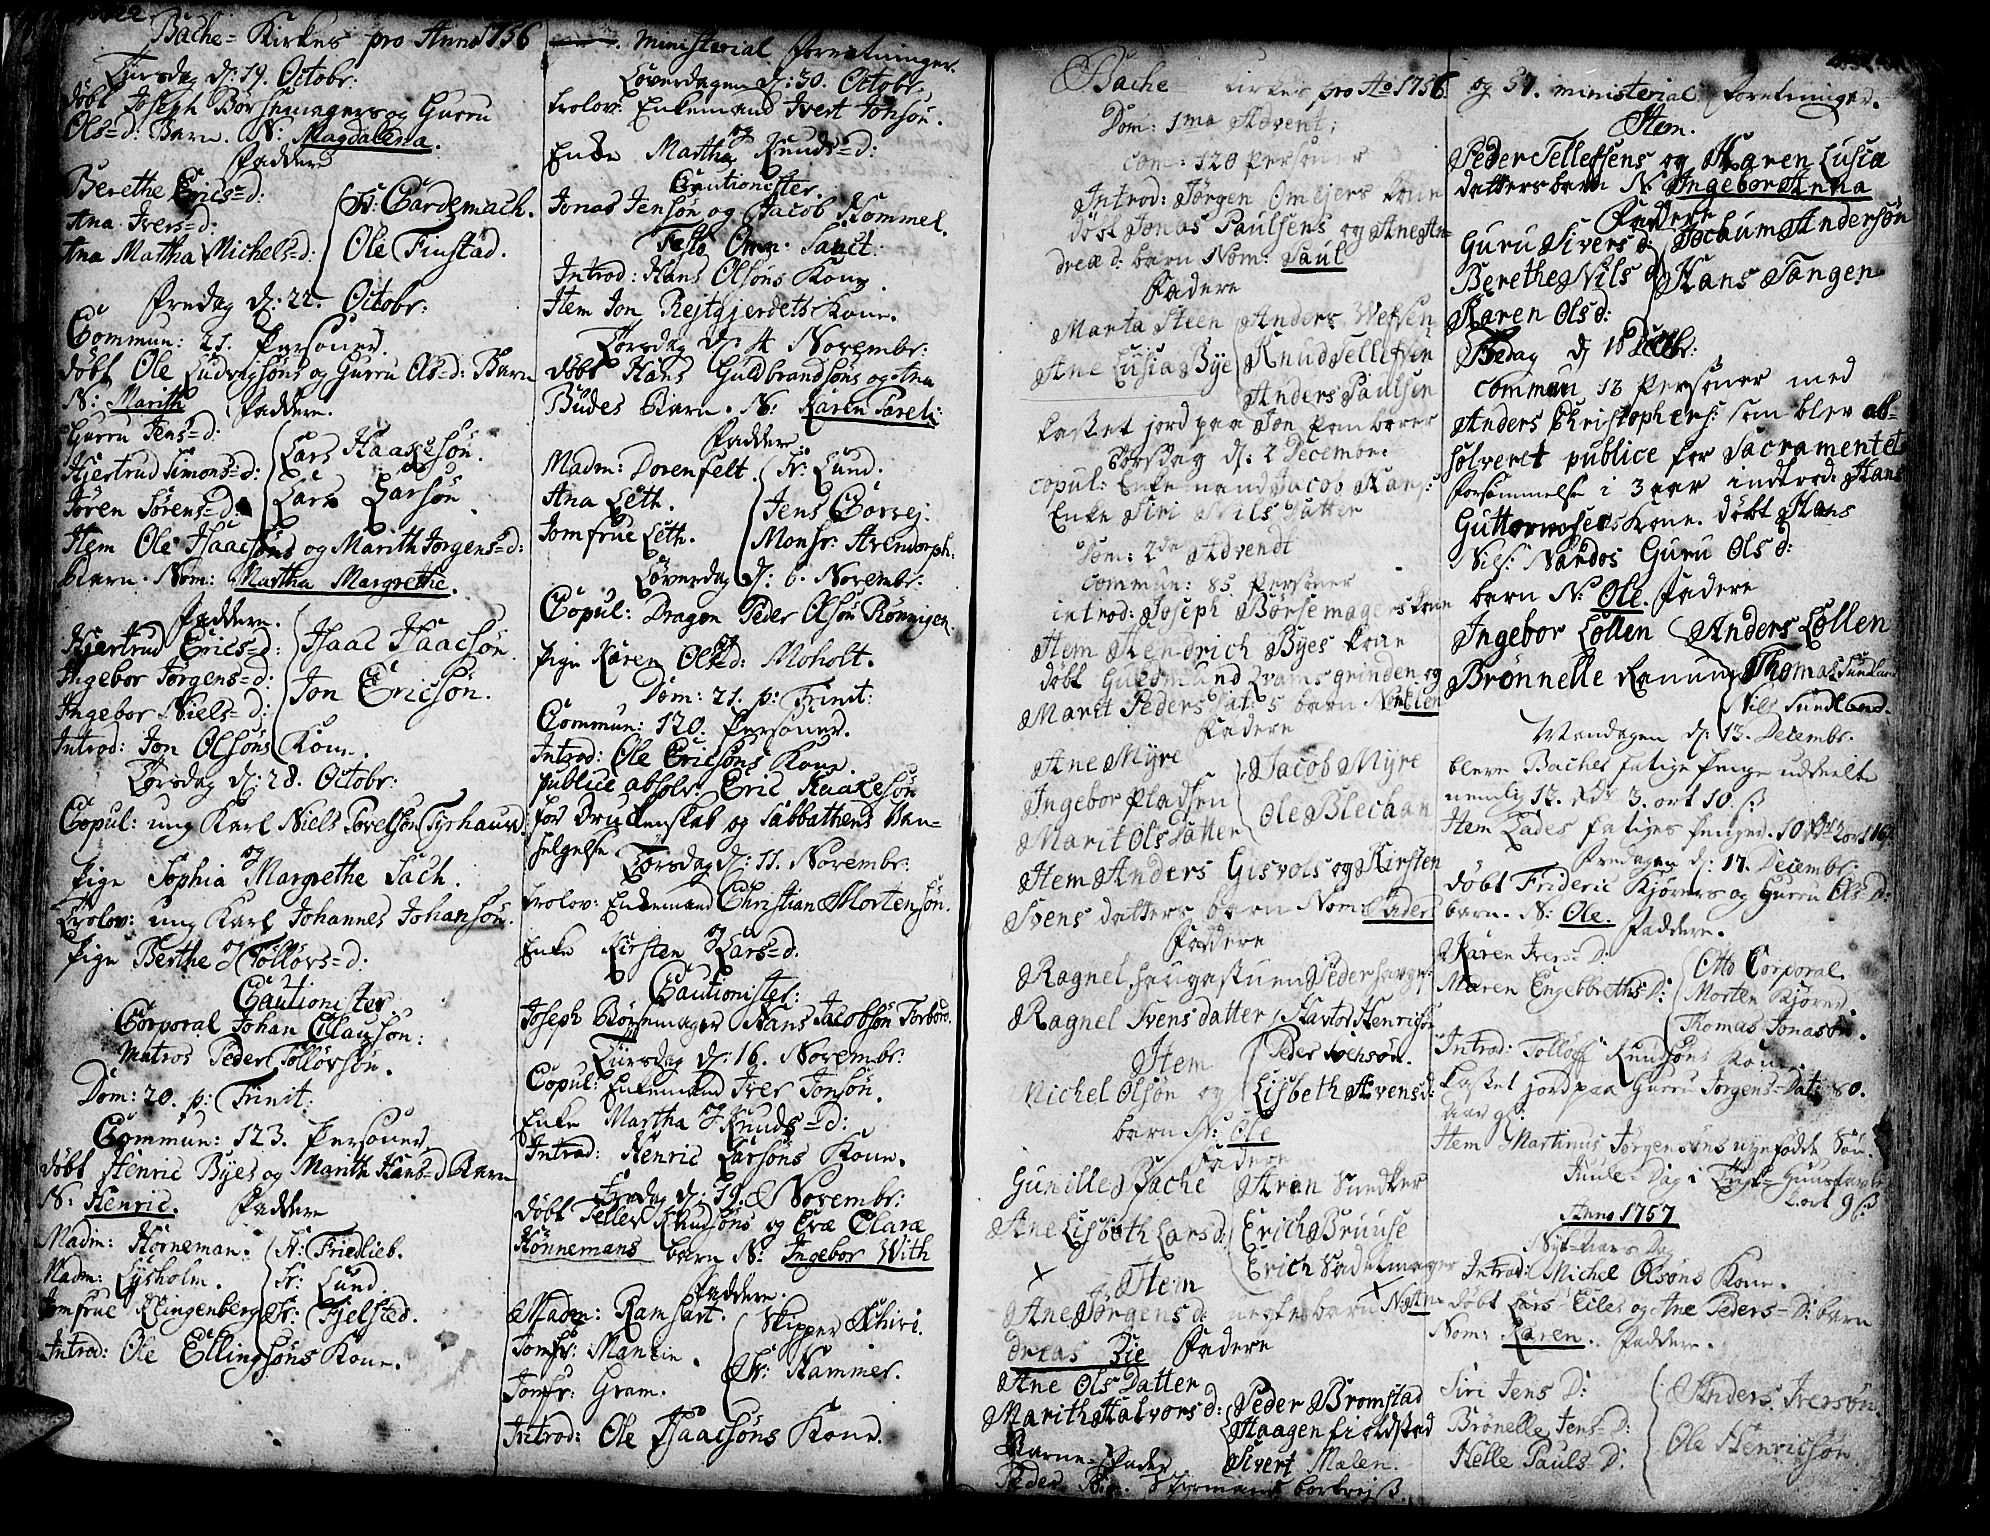 Bache= Kirkes pro Anno 1756
Tiirsdag d: 19. Octobr:
døbt Joseph Børsemagers og Gurru
Ols=d: Barn. N: Magdalena.
Faddere
Berethe Erics=d:
Ana Ivers=d:
Ana Martha Michels=d:
Hr: Gardemach.
Ole Finstad.
Fredag d: 22. Octobr:
Commun: 21. Personer.
døbt Ole Ludvigsøns og Gurru Ols=d: Barn
N: Marith Faddere.
Gurru Jens=d:
Hjertrud Simons=d:
Jøren Sørens=d:
Lars Haakesøn.
Lars Larsøn
Item Ole Isaacsøns og Marith Jørgens=d:
Barn. Nom: Martha Margrethe.
Faddere.
Hjertrud Erics=d:
Ingebor Jørgens=d:
Ingebor Niels=d:
Isaac Isaacsøn
Jon Ericsøn.
Introd: Jon Olsøns Kone.
Torsdag d: 28. Octobr:
Copul: ung Karl Niels Povelsøn Tyrhaug
og
Pige Sophia Margrethe Sach.
Trolov: ung Karl Johannes Johansøn.
og
Pige Berthe Tolløvs=d:
Cautionister
Corporal Johan Clausøn:
Matros Peder Tolløvsøn.
Dom: 20. p: Trinit:
Commun: 123. Personer
døbt Henric Byes og Marith Hans=d Barn
N: Henric. Faddere
Madm: Horneman.
Madm: Lysholm.
Jomfrue Klingenberg
Hr: Friedlieb.
Hr: Lund.
Hr: Fjelsted.
Introd: Ole Ellingsøns Kone.
Ministerial Forretninger.
Løverdagen d: 30. Octobr:
trolov: Enkemand Ivert Jonsøn.
og
Enke Martha Knuds=d:
Cautionister
Jonas Jensøn og Jacob Hommel.
Festo Omn: Sanct:
Introd: Hans Olsøns Kone.
Item Jon Rejtgjerdets Kone.
Torsdag d: 4 Novembr:
døbt Hans Guldbrandsøns og Ana
Budes Barn. N: Karen Sareli
Faddere.
Madm: Dorenfelt.
Ana Leth.
Jomfrue Leth.
Hr: Lund.
Jens Garvej.
Monsr: Arendorph.
Løverdag d: 6. Novembr:
Copul: Dragon Peder Olsøn Rønnigen.
og
Pige Karen Ols=d: Moholt.
Dom: 21. p: Trinit:
Commun: 120. Personer.
Introd: Ole Ericsøns Kone.
publice absolv: Eric Haakesøn
for Druckenskab og Sabbathens Van=
helgelse
Torsdag d: 11. Novembr:
trolov: Enkemand Christian Mortensøn.
og
Enke Kirsten Lars=d.
Cautionister:
Joseph Børsemager Hans Jacobsøn Forbord.
Tiirsdag d: 16. Novembr:
Copul: Enkemand Iver Jonsøn.
og
Enke Martha Knuds=d:
Introd: Henric Larsøns Kone.
Fredag d: 19. Novembr:
døbt Tellev Knudsøns og Eva Clara
Hønnemans barn N: Ingebor With
Faddere.
Madm: Ramshart.
Jomfr: Mansin.
Jomfr: Gram.
Skipper Schiri.
Hr: Hammer.
Introd: Ole Isaacsøns Kone.
Bache kirkes pro Ao 1756. og 57. ministerial forretninger.
Dom: 1ma Advent;
com: 120 personer
Introd: Jørgen Omejers kone
døbt Jonas Paulsens og Ane An=
dreæ d: barn Nom: Paul
Fadere
Marta Steen
Ane Lusia Bye
Anders Wefsen
Knud Tellefsen
Anders Paulsen
kastet jord paa Jon
Torsdag d: 2 Decembr:
copul: Enkemand Jacob Hans:
Enke Siri Nils Datter
Dom: 2da Advendt
commun: 85 personer
introd: Joseph Børsemagers kone
Item Hendrich Byes kone
døbt Guldmund Kvamsgrinden og
Marit Peders Dat:s barn N:
Fadere
Ane Myre
Ingebor Pladsen
Marit Ols Datter
Jacob Myre
Ole Blechan
Item Anders Gisvols og Kirsten
Svens datters barn Nom: Peder
Fadere
Ragnel haugastuen
Ragnel Svens datter
Peder hauge
Hastod Henrisøn
Peder Svensøn.
Item
Michel Olsøn og Lisbeth Arens d:
barn N: Ole
Fadere
Gunille Bache
Ane Lisbeth Lars d:
Aren Sundker
Erich Bruuse
Erich Sadelmager
Item
Ane Jørgens d: uegte barn N: An=
dreas Bie Fadere
Ane Ols Datter
Marith Halvors d:
Peder Bromstad
Haagen fieldsted
Sivert Malen.
Barne-Fader
Peder Bie. Styrmand
Item.
Peder Tellefsens og Karen Lusia
datters barn N: Ingebor Anna
Fadere
Guru Sivers d:
Berethe Nils d:
Karen Ols d:
Jochum Andersøn
Hans Tangen
Fredag d 10 Decbr:
commun 12 personer med
Anders Christophers: som blev ab=
solveret publice for Sacramentets
forsømmelse i 3 aar indtrod: Hans
Guttormsens kone. døbt Hans
Nils: Nardos Guru Ols d:
barn N: Ole. Fadere
Ingebor Løllen
Brønnelle Ranum
Anders Løllen
Thomas Sundland
Nils Sundland.
Mandagen d: 13. Decembr.
bleve Bachels fatige Penge uddeelte
nemlig 12. rd. 3. ort 10. s
Item Lades fatiges penge. 10 rd 2 ort 16
Fredagen d: 17. Decembr:
døbt Frideric Kjørers og Gurru Ols=D:
barn. N: Ole. Faddere.
Karen Ivers=D:
Maren Engebreths D:
Otto Corporal.
Morten Kjører.
Thomas Jonasøn.
Introd: Tolløff Knudsøns Kone.
Kastet jord paa Gurru Jørgens=Dat: 80.
aar gl:
Item Martinus Jørgensøns nyefødte Søn.
Juule=Dag i
1 ort 9 s
Anno 1757
Nyt=Aars Dag
Introd: Michel Olsøns Kone.
døbt Lars Eiles og Ane Peders=D: barn
Nom: Karen. Faddere.
Siri Jens D:
Brønelle Jens=D:
Helle Pauls=D:
Anders Iversøn.
Ole Henricsøn